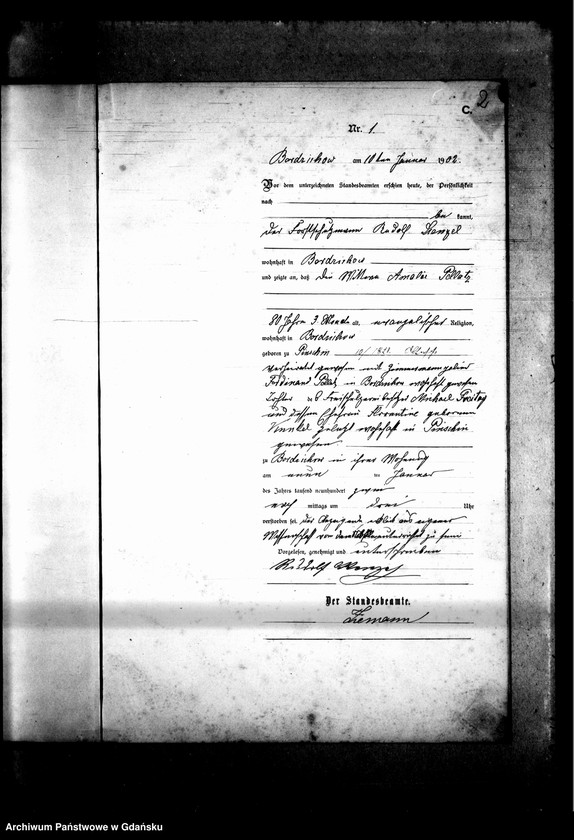 C. 2
Nr. 1
Bordzichow am 10ten Januar 1902.
Vor dem unterzeichneten Standesbeamten erschien heute, der Persönlichkeit
nach
be kannt,
der Forstschutzmann Rudolf Wenzel
wohnhaft in Bordzichow
und zeigte an, daß die Wittwe Amalie Pollatz
80 Jahre 3 Monate alt, evangelischer Religion,
wohnhaft in Bordzichow
geboren zu
verheirathet gewesen mit Zimmermann
Ferdinand in Bordzichow wohnhaft gewesen
Tochter des Michael Freitag
und dessen Ehefrau Florentine geborenen
Kunkel zuletzt wohnhaft in
gewesen
zu Bordzichow in ihrer Wohnung
am neun ten Januar
des Jahres tausend neunhundert zwei
nach mittags um drei Uhr
verstorben sei. Der Anzeigende erklärt aus eigener
Wissenschaft von dem unterrichtet zu sein
Vorgelesen, genehmigt und unterschrieben
Rudolf Wenzel
Der Standesbeamte.
Ziemann
Archiwum Państwowe w Gdańsku